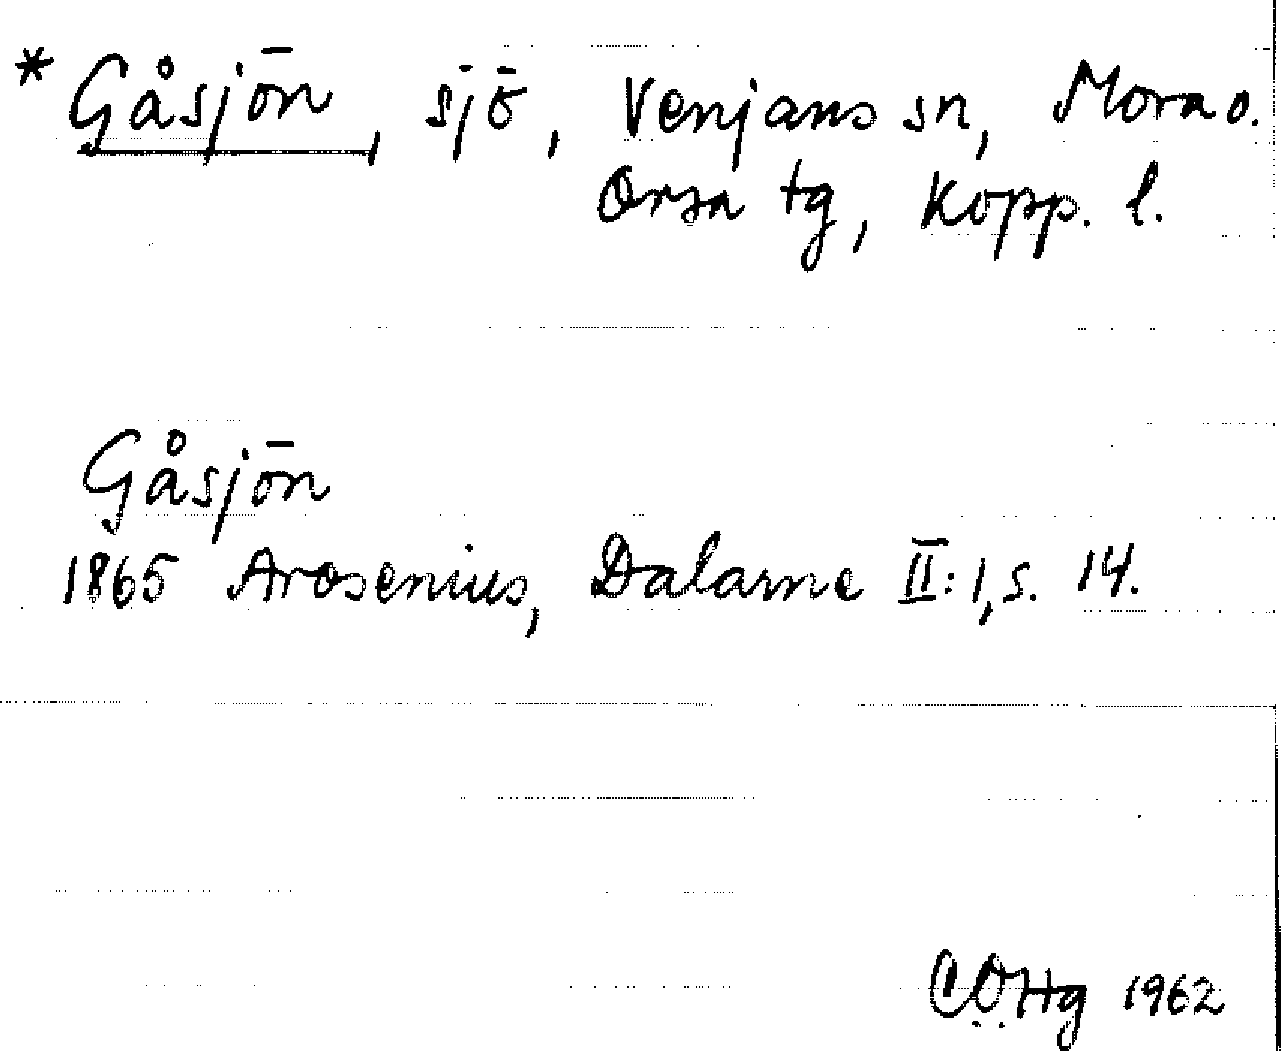 * Gåsjön, sjö, Venjans sn, Mora o.
Orsa tg, Kopp. l.
Gåsjön
1865 Arosenius, Dalarne II:1, s. 14.
CÖHg 1962